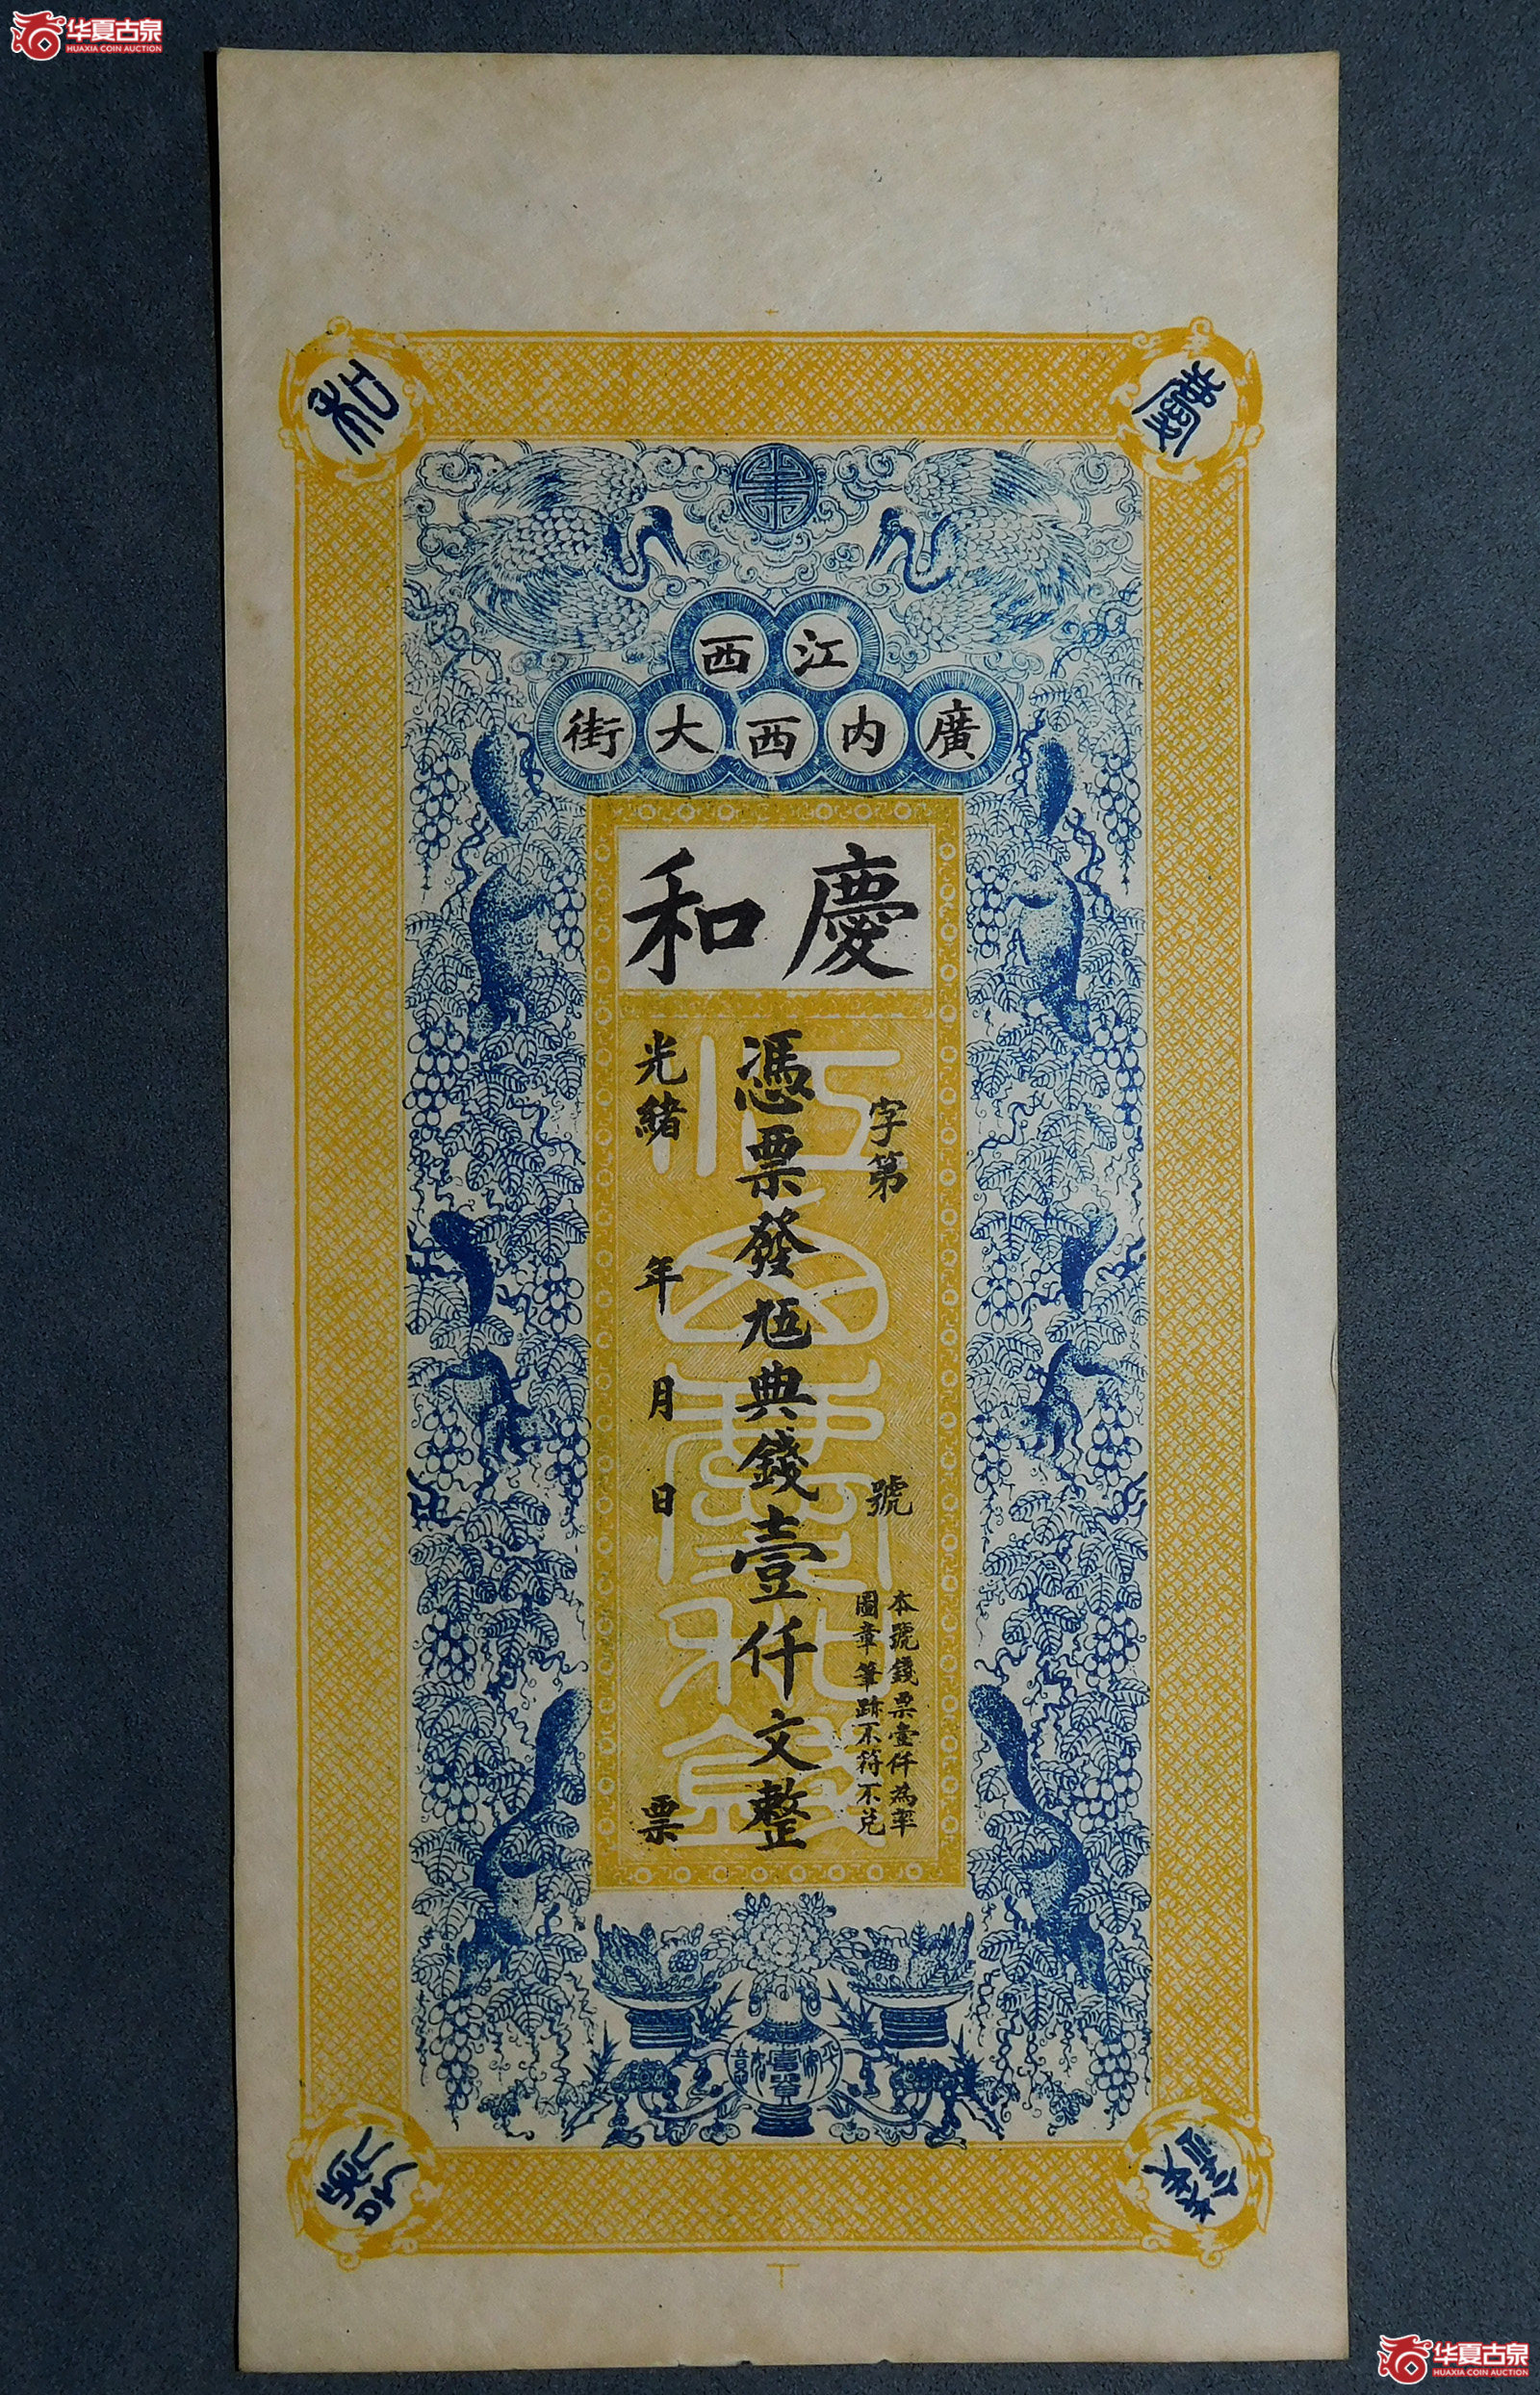 华夏古泉
HUAXIA COIN AUCTION
慶和
錢號
江西
廣內西大街
慶和
字第 號
本號錢票壹仟為率
圖章筆跡不符不兌
憑票發九五典錢壹仟文整
光緒 年 月 日 票
江西慶和錢
华夏古泉
HUAXIA COIN AUCTION